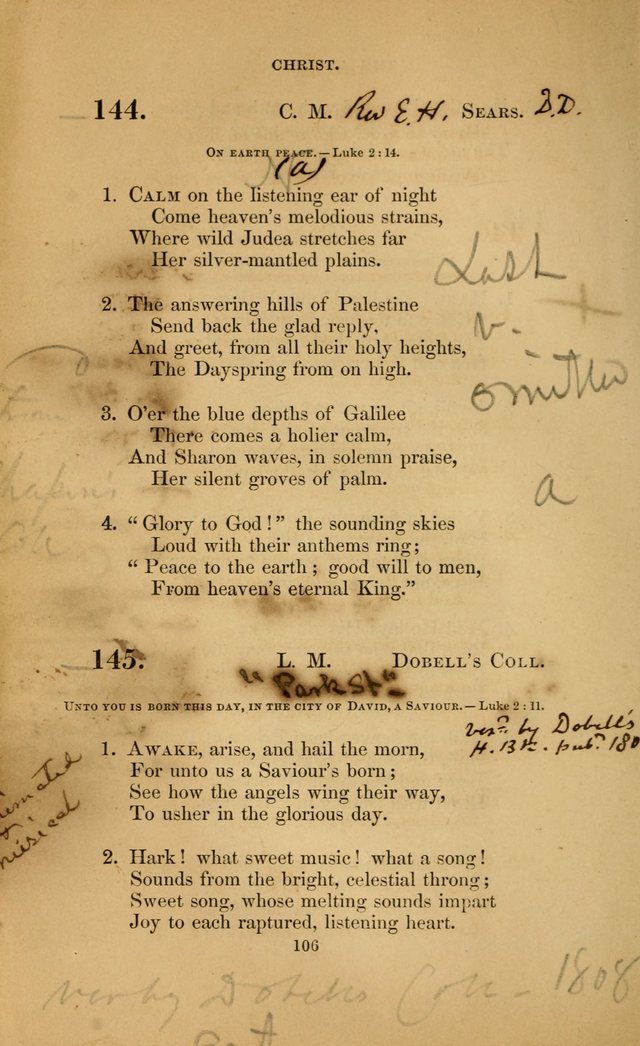 CHRIST.
144. C. M. Rev E. H. SEARS. D.D.
ON EARTH PEACE.—Luke 2 : 14.
(a)
1. CALM on the listening ear of night
Come heaven's melodious strains,
Where wild Judea stretches far
Her silver-mantled plains.
Last
2. The answering hills of Palestine
Send back the glad reply,
v.
And greet, from all their holy heights,
The Dayspring from on high.
omitted
3. O'er the blue depths of Galilee
There comes a holier calm,
And Sharon waves, in solemn praise,
Her silent groves of palm.
a
Chapin's
Coll
4. “ Glory to God ! ” the sounding skies
Loud with their anthems ring ;
“ Peace to the earth ; good will to men,
From heaven's eternal King.”
145. L. M. DOBELL'S COLL.
"Park St"
UNTO YOU IS BORN THIS DAY, IN THE CITY OF DAVID, A SAVIOUR.—Luke 2 : 11.
by Dobell's
H. Bk. pub. 180
1. AWAKE, arise, and hail the morn,
For unto us a Saviour's born ;
See how the angels wing their way,
To usher in the glorious day.
animated
&
musical
2. Hark ! what sweet music ! what a song !
Sounds from the bright, celestial throng ;
Sweet song, whose melting sounds impart
Joy to each raptured, listening heart.
106
ver by Dobells Coll - 1808